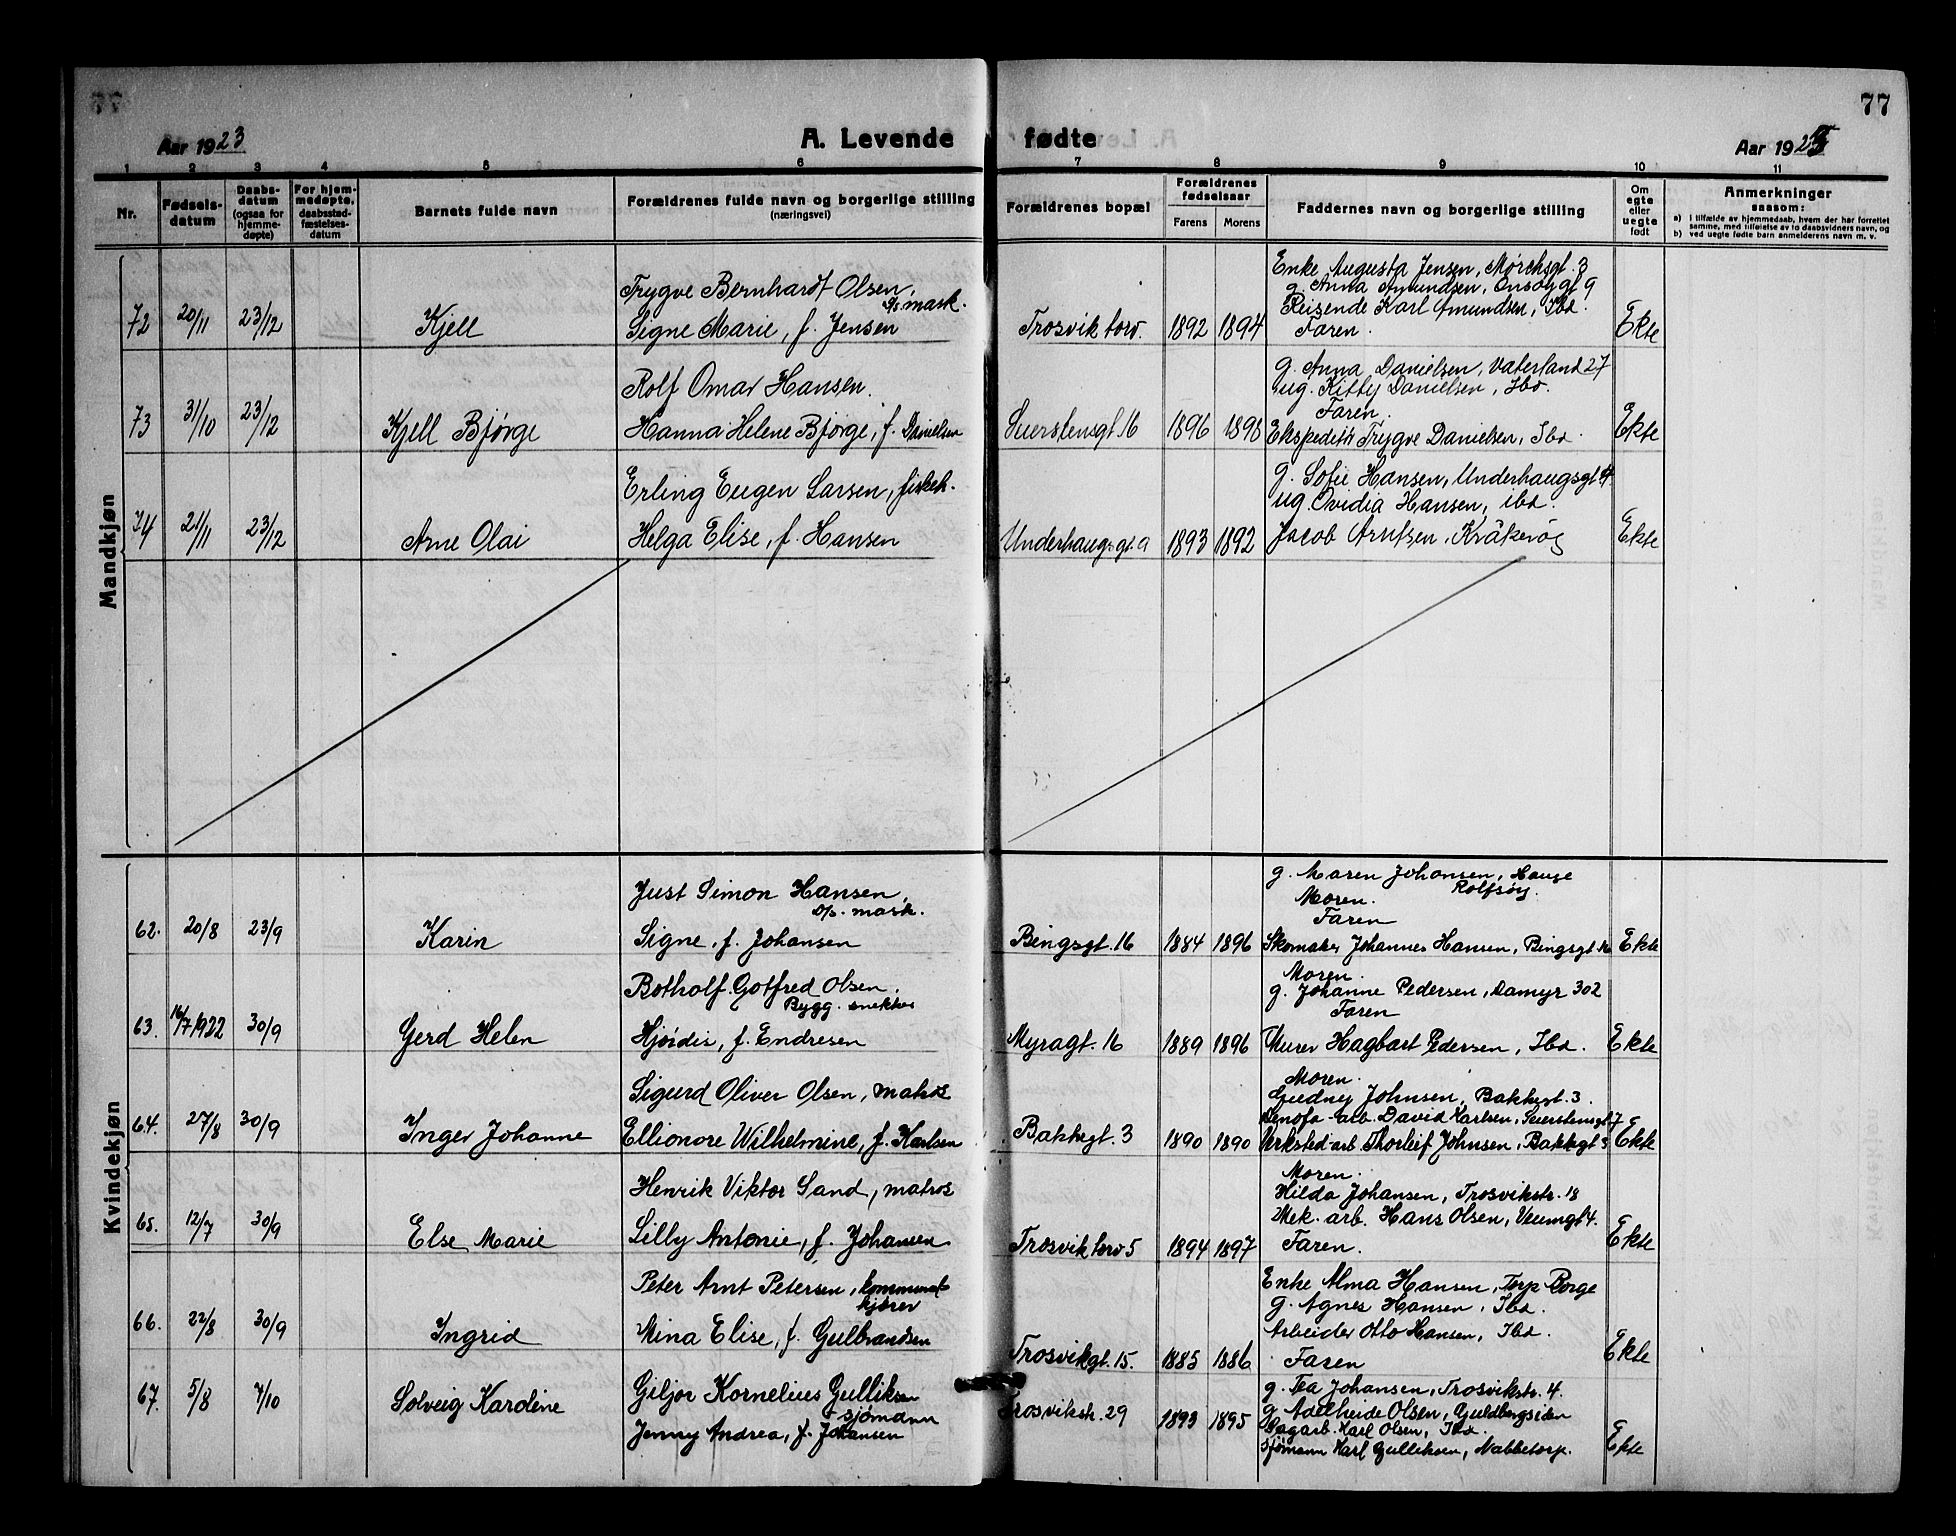 77
Aar 1923
A. Levende fødte
Aar 1923
1 2 3 4 5 6 7 8 9 10 11
Nr.
Fødsels-
datum
Daabs-
datum
(ogsaa for
hjemme-
døpte)
For hjem-
medøpte,
daabsstad-
fæstelses-
datum
Barnets fulde navn
Forældrenes fulde navn og borgerlige stilling
(næringsvei)
Forældrenes bopæl
Forældrenes
fødselsaar
Farens Morens
Faddernes navn og borgerlige stilling
Om
egte
eller
uegte
født
Anmerkninger
saasom:
a) i tilfælde av hjemmedaab, hvem der har forrettet
samme, med tilføielse av to daabsvidners navn, og
b) ved uegte fødte barn anmelderens navn m. v.
Mandkjøn
72 20/11 23/12 Kjell
Trygve Bernhardt Olsen,
d/s mask.
Signe Marie, f. Jensen
Trosvik torv. 1892 1894
Enke Augusta Jensen, Mørchsgt. 3
g. Anna Amundsen, Onsøygt 9
Reisende Karl Amundsen, Ibd.
Faren.
Ekte
73 31/10 23/12 Kjell Bjørge
Rolf Omar Hansen.
Hanna Helene Bjørge, f. Danielsen
Suerstensgt. 16 1896 1898
g. Anna Danielsen, Vaterland 27
ug. Kitty Danielsen, Ibd.
Faren.
Ekspeditør Trygve Danielsen, Ibd.
Ekte
74 21/11 23/12 Arne Olai
Erling Eugen Larsen, fiskeh.
Helga Elise, f. Hansen
Underhaugsgt. 9 1893 1892
g. Sofie Hansen, Underhaugsgt 9
ug. Ovidia Hansen, ibd.
Jacob Arntsen, Kråkerøy
Ekte
Kvindekjøn
62. 20/8 23/9 Karin
Just Simon Hansen,
d/s. mask.
Signe, f. Johansen
Bingsgt. 16 1884 1896
g. Maren Johansen, Hauge
Rolfsøy.
Moren.
Faren
Skomaker Johannes Hansen, Bingsgt. 16
Ekte
63. 16/7 1922 30/9 Gerd Helen
Botholf Gotfred Olsen,
Bygg. snekker
Hjørdis, f. Endresen
Myragt. 16 1889 1896
Moren.
g. Johanne Pedersen, Damyr 302
Faren
Murer Hagbart Pedersen, Ibd.
Ekte
64. 27/8 30/9 Inger Johanne
Sigurd Oliver Olsen, matros
Ellionore Wilhelmine, f. Karlsen
Bakkegt. 3 1890 1890
Moren.
Gudny Johnsen, Bakkegt. 3.
Denofa-arb. David Karlsen, Suerstensgt. 7
Verksted-arb Thorleif Johnsen, Bakkegt 3
Ekte
65. 12/7 30/9 Else Marie
Henrik Viktor Sand, matros
Lilly Antonie, f. Johansen
Trosvik torv 5 1894 1897
Moren.
Hilda Johansen, Trosvikstr. 18
Mek. arb. Hans Olsen, Veumgt 4.
Faren.
Ekte
66. 22/8 30/9 Ingrid
Peter Arnt Petersen, kommunal-
kjører
Mina Elise, f. Gulbrandsen
Trosvikgt. 15. 1885 1886
Enke Alma Hansen, Torp Borge
g. Agnes Hansen, Ibd.
Arbeider Otto Hansen, Ibd.
Faren
Ekte
67. 5/8 7/10 Solveig Karoline
Giljor Kornelius Gulliksen
sjømann
Jenny Andrea, f. Johansen
Trosvikstr. 29 1893 1895
g. Tea Johansen, Trosvikstr. 4.
g. Adelheide Olsen, Guldbergsiden
Sagarb. Karl Olsen, Ibd.
Sjømann Karl Gulliksen, Nabbetorp.
Ekte